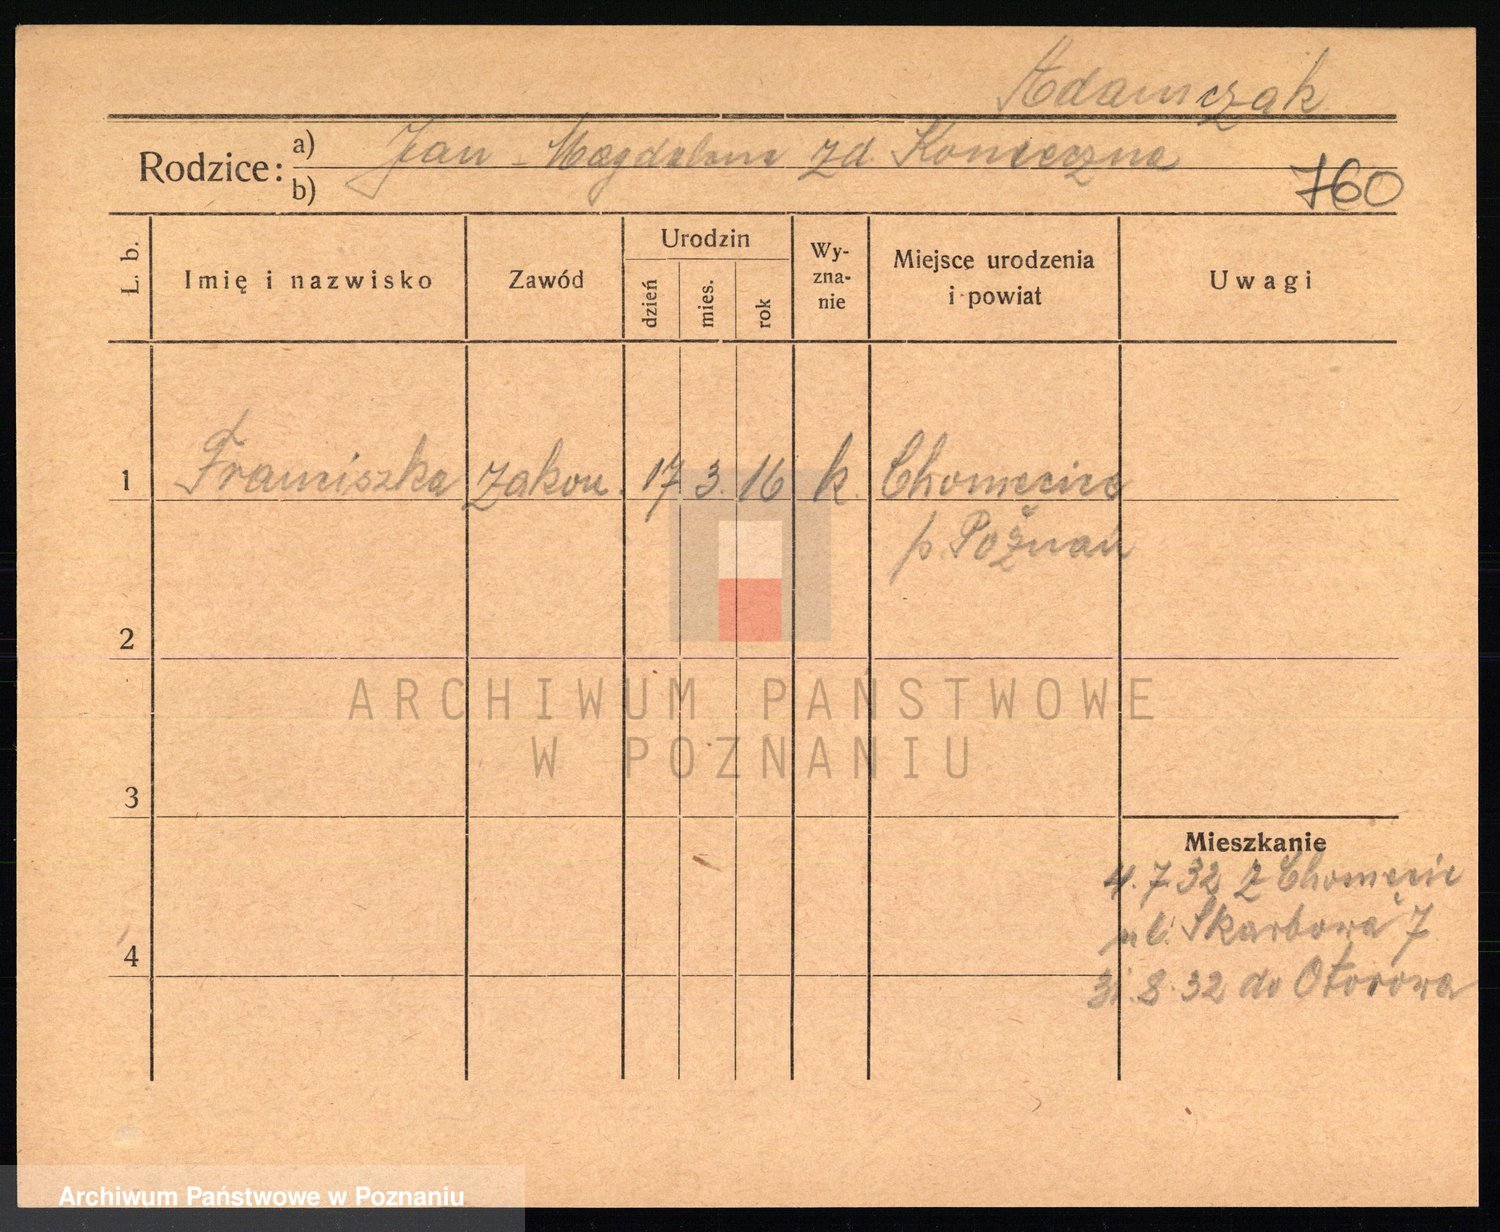 Adamczak
Rodzice: a) Jan - Magdalena zd. Konieczna
b)
760
L. b.
Imię i nazwisko
Zawód
Urodzin
dzień
mies.
rok
Wy-
zna-
nie
Miejsce urodzenia
i powiat
Uwagi
1 Franciszka zakon. 17 3. 16 k. Chomęcice
p. Poznań
2
3
4
Mieszkanie
4. 7 32 z Chomęcic
ul. Skarbowa 7
31. 8. 32 do Otorowa
ARCHIWUM PAŃSTWOWE
W POZNANIU
Archiwum Państwowe w Poznaniu